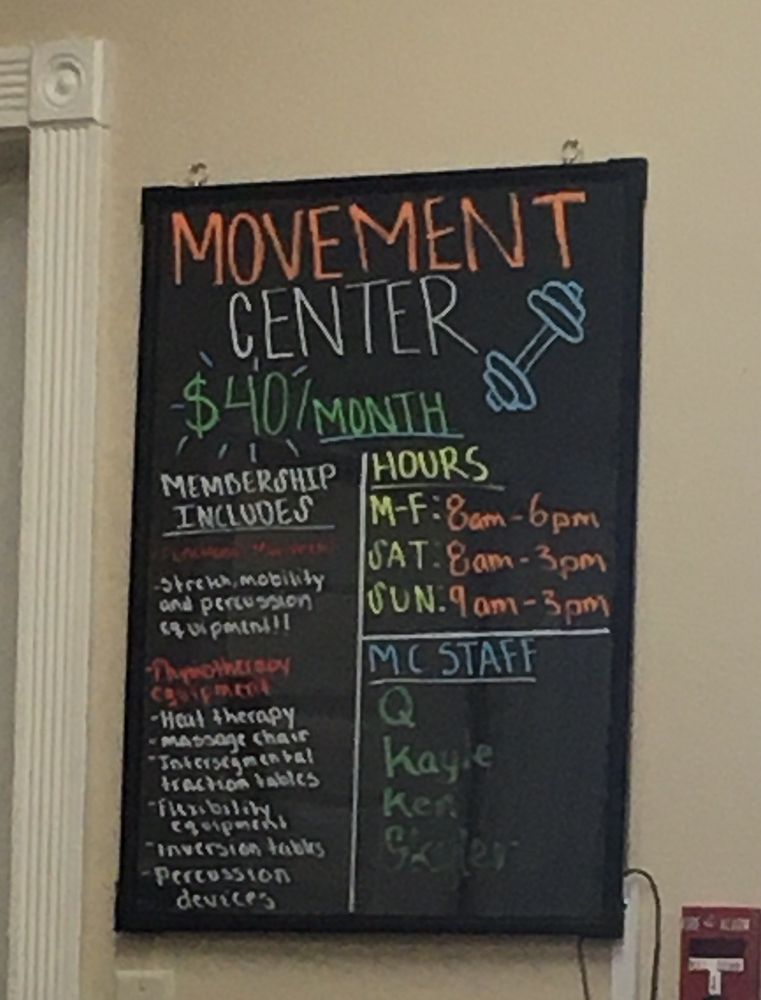 MOVEMENT
CENTER
$40/MONTH
MEMBERSHIP
INCLUDES
-Stretch, mobility
and percussion
equipment!!
equipment
-Heat therapy
-massage chair
-Intersegmental
traction tables
-Flexibility
equipment
-inversion tables
-percussion
devices
HOURS
M-F: 8am-6pm
SAT: 8am-3pm
SUN: 9am-3pm
MC STAFF
Q
Kaylie
Ken
ALARM